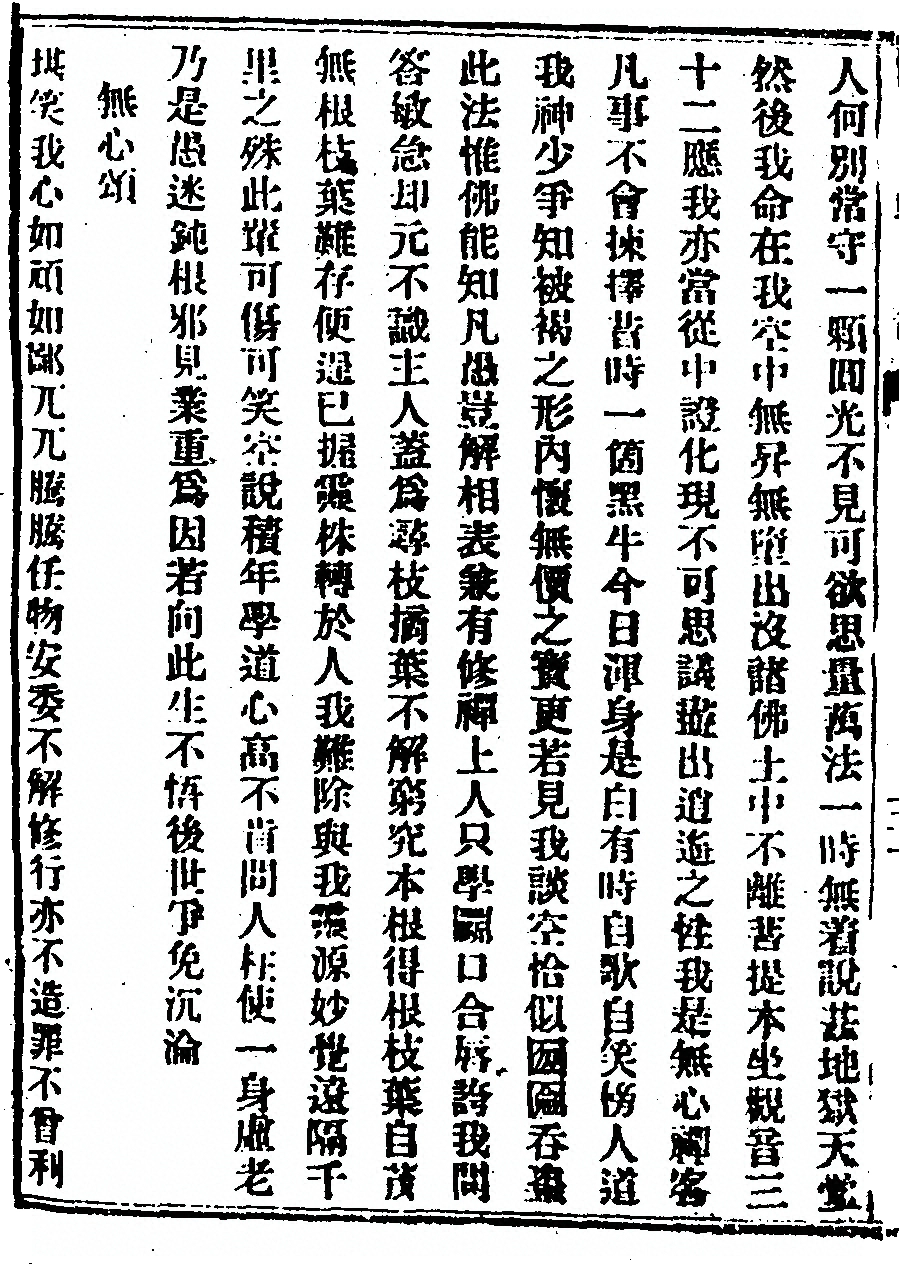 人何別常守一顆圓光不見可欲思量萬法一時無着說甚地獄天堂
然後我命在我空中無昇無墮出沒諸佛土中不離菩提本坐觀音三
十二應我亦當從中證化現不可思議遊出逍遙之性我是無心禪客
凡事不會揀擇昔時一箇黑牛今日渾身是白有時自歌自笑傍人道
我神少爭知被褐之形內懷無價之寶更若見我談空恰似囫圇吞棗
此法惟佛能知凡愚豈解相表兼有修禪上人只學鬬口合唇誇我問
答敏急却元不識主人蓋爲尋枝摘葉不解窮究本根得根枝葉自茂
無根枝葉難存便逞已握靈株轉於人我難除與我靈源妙覺遠隔千
里之殊此輩可傷可笑空說積年學道心高不肯問人枉使一身虛老
乃是愚迷鈍根邪見業重爲因若向此生不悟後世爭免沉淪
無心頌
堪笑我心如頑如鄙兀兀騰騰任物安委不解修行亦不造罪不曾利